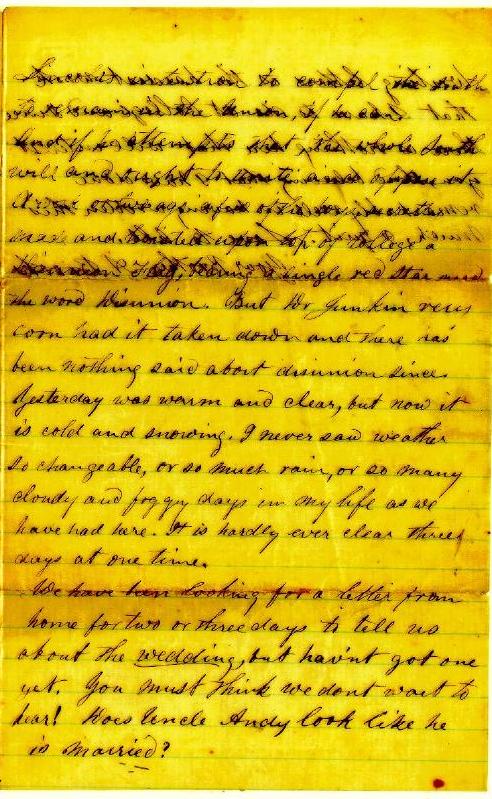 Lincoln's intention to compel the South
to remain in the Union, if he can
And if he attempts that, the whole South
will and ought to unite and oppose it.
A ago a few of the
men and hoisted upon top of College a
Disunion Flag, bearing a single red star and
the word Disunion. But Dr Junkin very
soon had it taken down and there has
been nothing said about disunion since.
Yesterday was warm and clear, but now it
is cold and snowing. I never saw weather
so changeable, or so much rain, or so many
cloudy and foggy days in my life as we
have had here. It is hardly ever clear three
days at one time.
We have been looking for a letter from
home for two or three days to tell us
about the wedding, but hav'nt got one
yet. You must think we dont want to
hear! Does Uncle Andy look like he
is married?